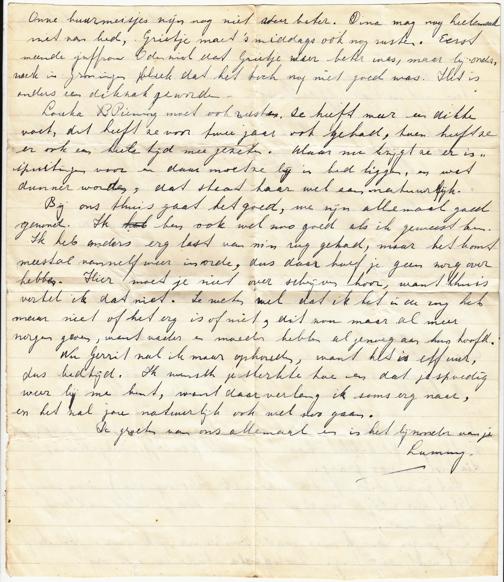 Onze buurmeisjes zijn nog niet weer beter. Dina mag nog heelemaal
niet van bed, Grietje moet 's middags ook nog rusten. Eerst
meende juffrouw dat Grietje weer beter was, maar bij onder,
zoek in Groningen bleek dat het toch nog niet goed was. Het is
anders een dikzak geworden.
Louka B Piening moet ook rusten. Ze heeft weer een dikke
voet, dit heeft ze voor twee jaar ook gehad, toen heeft ze
er ook een heele tijd mee gezeten. Maar nu krijgt ze er in „
spuitingen voor en daar moet ze bij in bed liggen, en wat
dunner worden, dat staat haar wel aan, natuurlijk.
Bij ons thuis gaat het goed, we zijn allemaal goed
gezond. Ik ben ook wel zoo goed als ik geweest ben.
Ik heb anders erg last van mijn rug gehad, maar het komt
meestal vanzelf weer in orde, dus daar hoef je geen zorg over
hebben. Hier moet je niet over schrijven hoor, want thuis
vertel ik dat niet. Ze weten wel dat ik het in de rug heb
maar niet of het erg is of niet, dit zou maar al meer
zorgen geven, want vader en moeder hebben al genoeg aan hun hoofd.
Nu Gerrit zal ik maar ophouden, want het is elf uur,
dus bedtijd. Ik wensch je sterkte hoor en dat je spoedig
weer bij me bent, want daar verlang ik soms erg naar,
en het zal jou natuurlijk ook wel zoo gaan.
Je groeten van ons allemaal en is het bijzonder van je
Lammy.